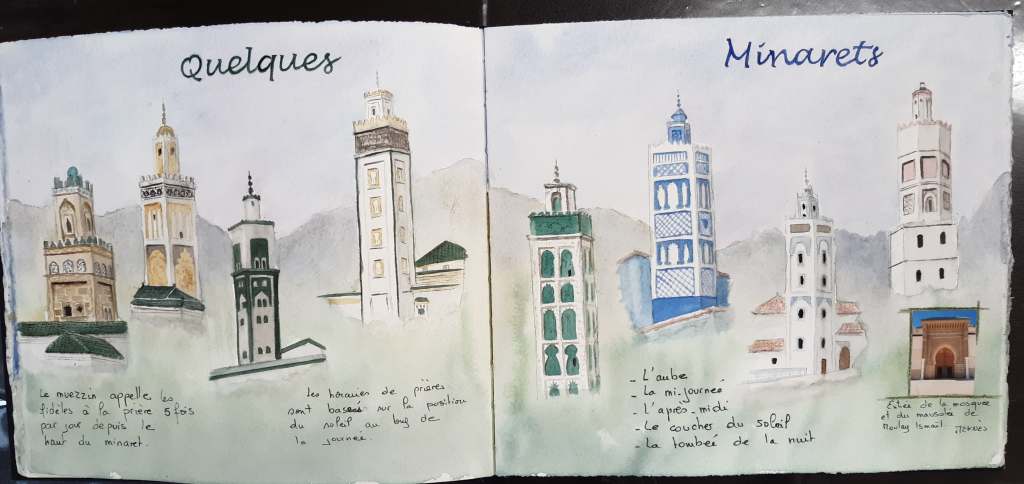 Quelques
Minarets
Le muezzin appelle les
fidèles à la prière 5 fois
par jour depuis le
haut du minaret.
les horaires de prières
sont basées sur la position
du soleil au long de
la journée.
- L'aube
- La mi-journée
- L'après-midi
- Le coucher du soleil
- La tombée de la nuit
Entrée de la mosquée
et du mausolée de
Moulay Ismaïl.